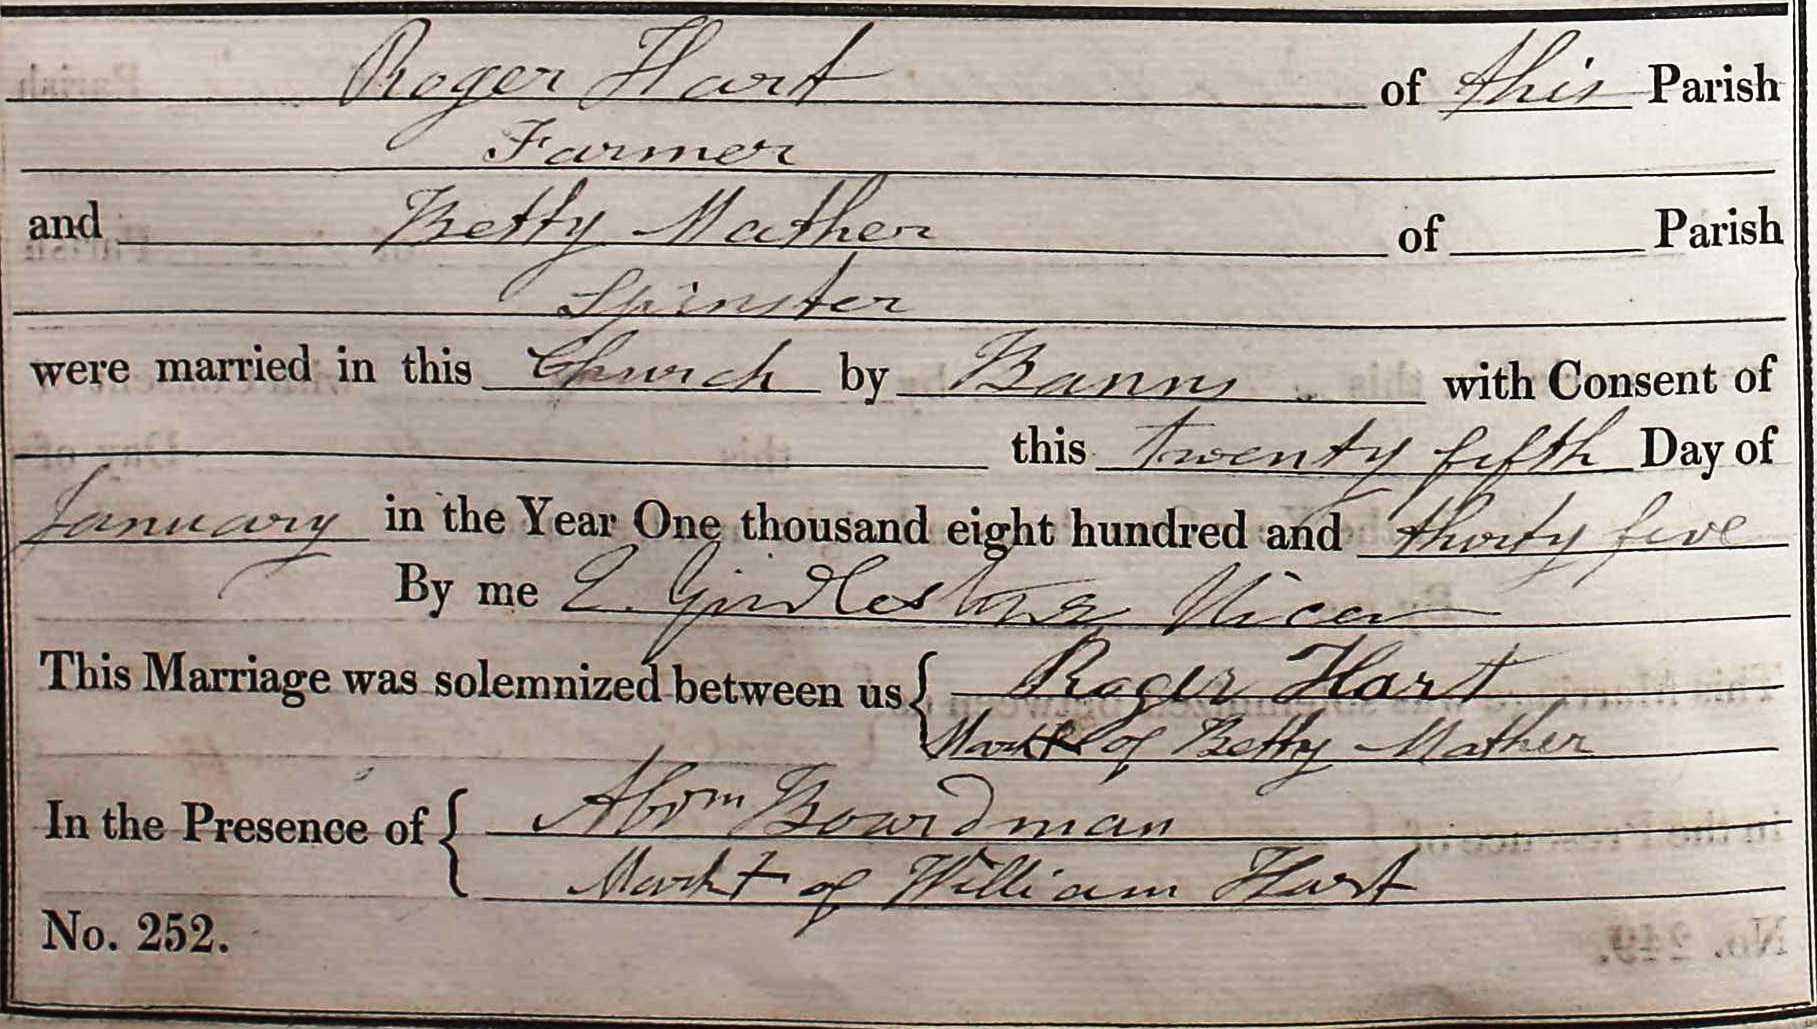 Roger Hart of this Parish
Farmer
and Betty Mather of Parish
Spinster
were married in this Church by Banns with Consent of
this twenty fifth Day of
January in the Year One thousand eight hundred and thirty five
By me E. Girdlestone Vicar
This Marriage was solemnized between us { Roger Hart
Mark + of Betty Mather
In the Presence of { Abrm Boardman
Mark + of William Hart
No. 252.
No. 249.